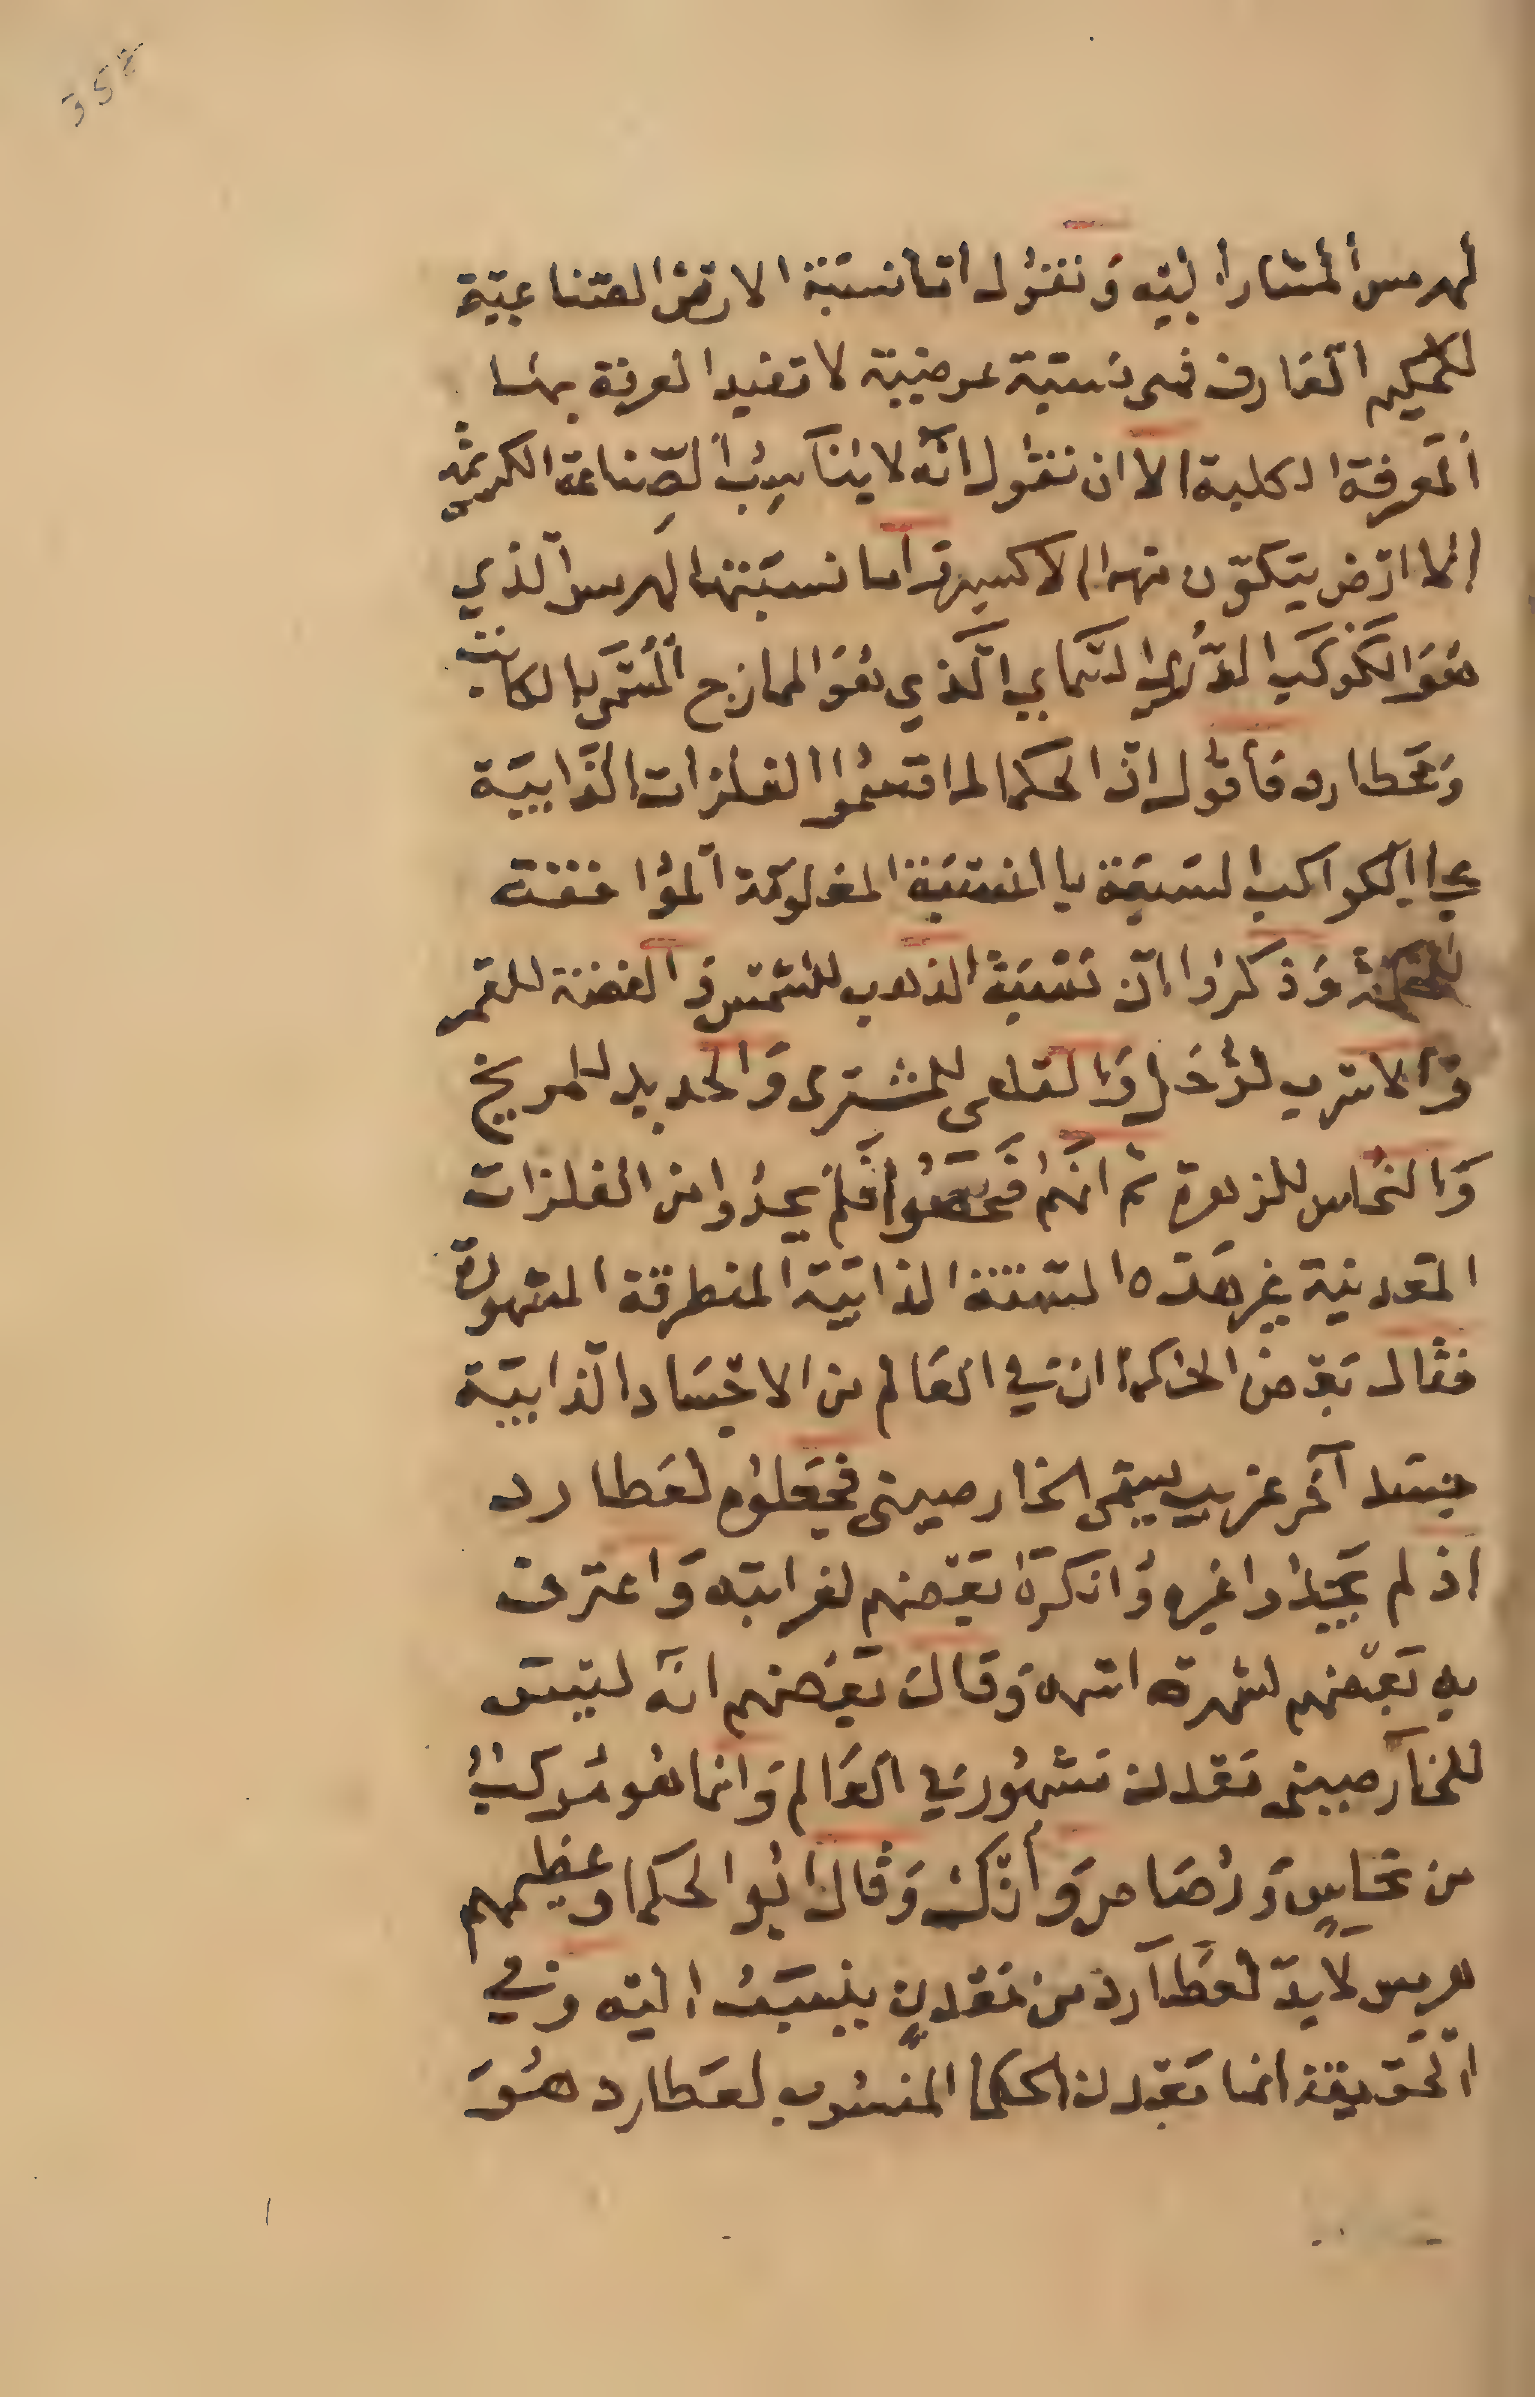 لهرمس المشار اليه ونقول اما نسبة الارض الصناعية
للحكيم العارف فهى نسبة عرضية لا تفيد المعرفة بها
المعرفة الكلية الا ان نقول انه لا يناسب الصناعة الكريمة
الا ارض يتكون منها الاكسير واما نسبتها لهرمس الذي
هو الكوكب الدري السماي الذي هو الممازج المسمى بالكاتب
وعطارد فأقول ان الحكما لما قسموا الفلزات الذايبة
على الكواكب السبعة بالنسبة المعلومة الموافقة
للحكمة وذكروا ان نسبة الذهب للشمس و الفضة للقمر
و الاسرب لزحل و القلعى للمشترى و الحديد للمريخ
و النحاس للزهرة ثم انهم فحصوا فلم يجدوا من الفلزات
المعدنية غير هذه الستة الذايبة المنطرقة المشهورة
فقال بعض الحكما ان في العالم من الاجساد الذايبة
جسد آخر غريب يسمى الخارصينى فجعلوه لعطارد
اذ لم يجدوا غيره و انكره بعضهم لغرابته و اعترف
به بعضهم لشهرة اسمه وقال بعضهم انه ليس
للخارصينى معدن مشهور في العالم و انما هو مركب
من نحاس و رصاص و أنك وقال ابو الحكما وعظيمهم
هرمس لا بد لعطارد من معدن ينسب اليه وفي
الحقيقة انما معدن الحكما المنسوب لعطارد هو